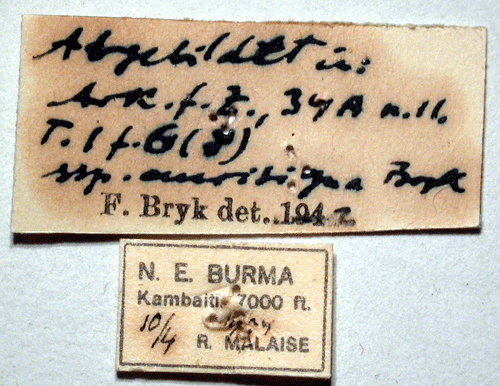 Abgebildet in:
Ark. f. Z., 34A n. 11.
T. 1 f. 6 (8)
ssp. Bryk
F. Bryk det. 1942
N. E. BURMA
Kambaiti 7000 ft.
10/4
R. MALAISE